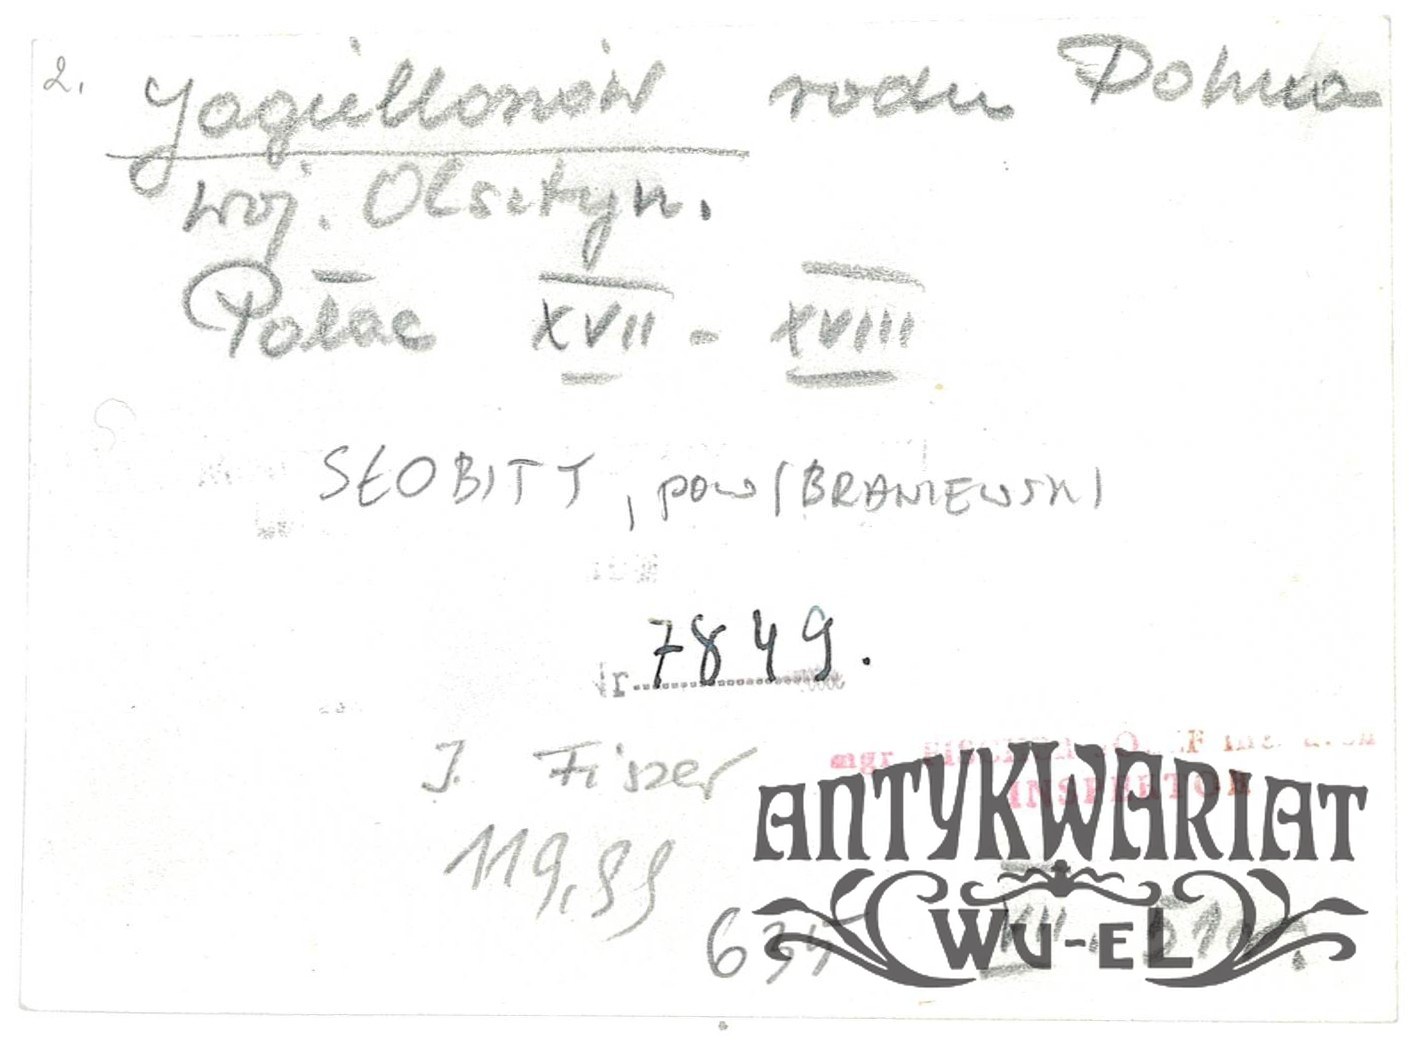 2. Jagiellonów rodu Dohna
woj. Olsztyn.
Pałac XVII - XVIII
SŁOBITY, pow. BRANIEWSKI
Nr 7849.
J. Fiszer
mgr
INSPEKTOR
119,99
635
ANTYKWARIAT
WU-EL